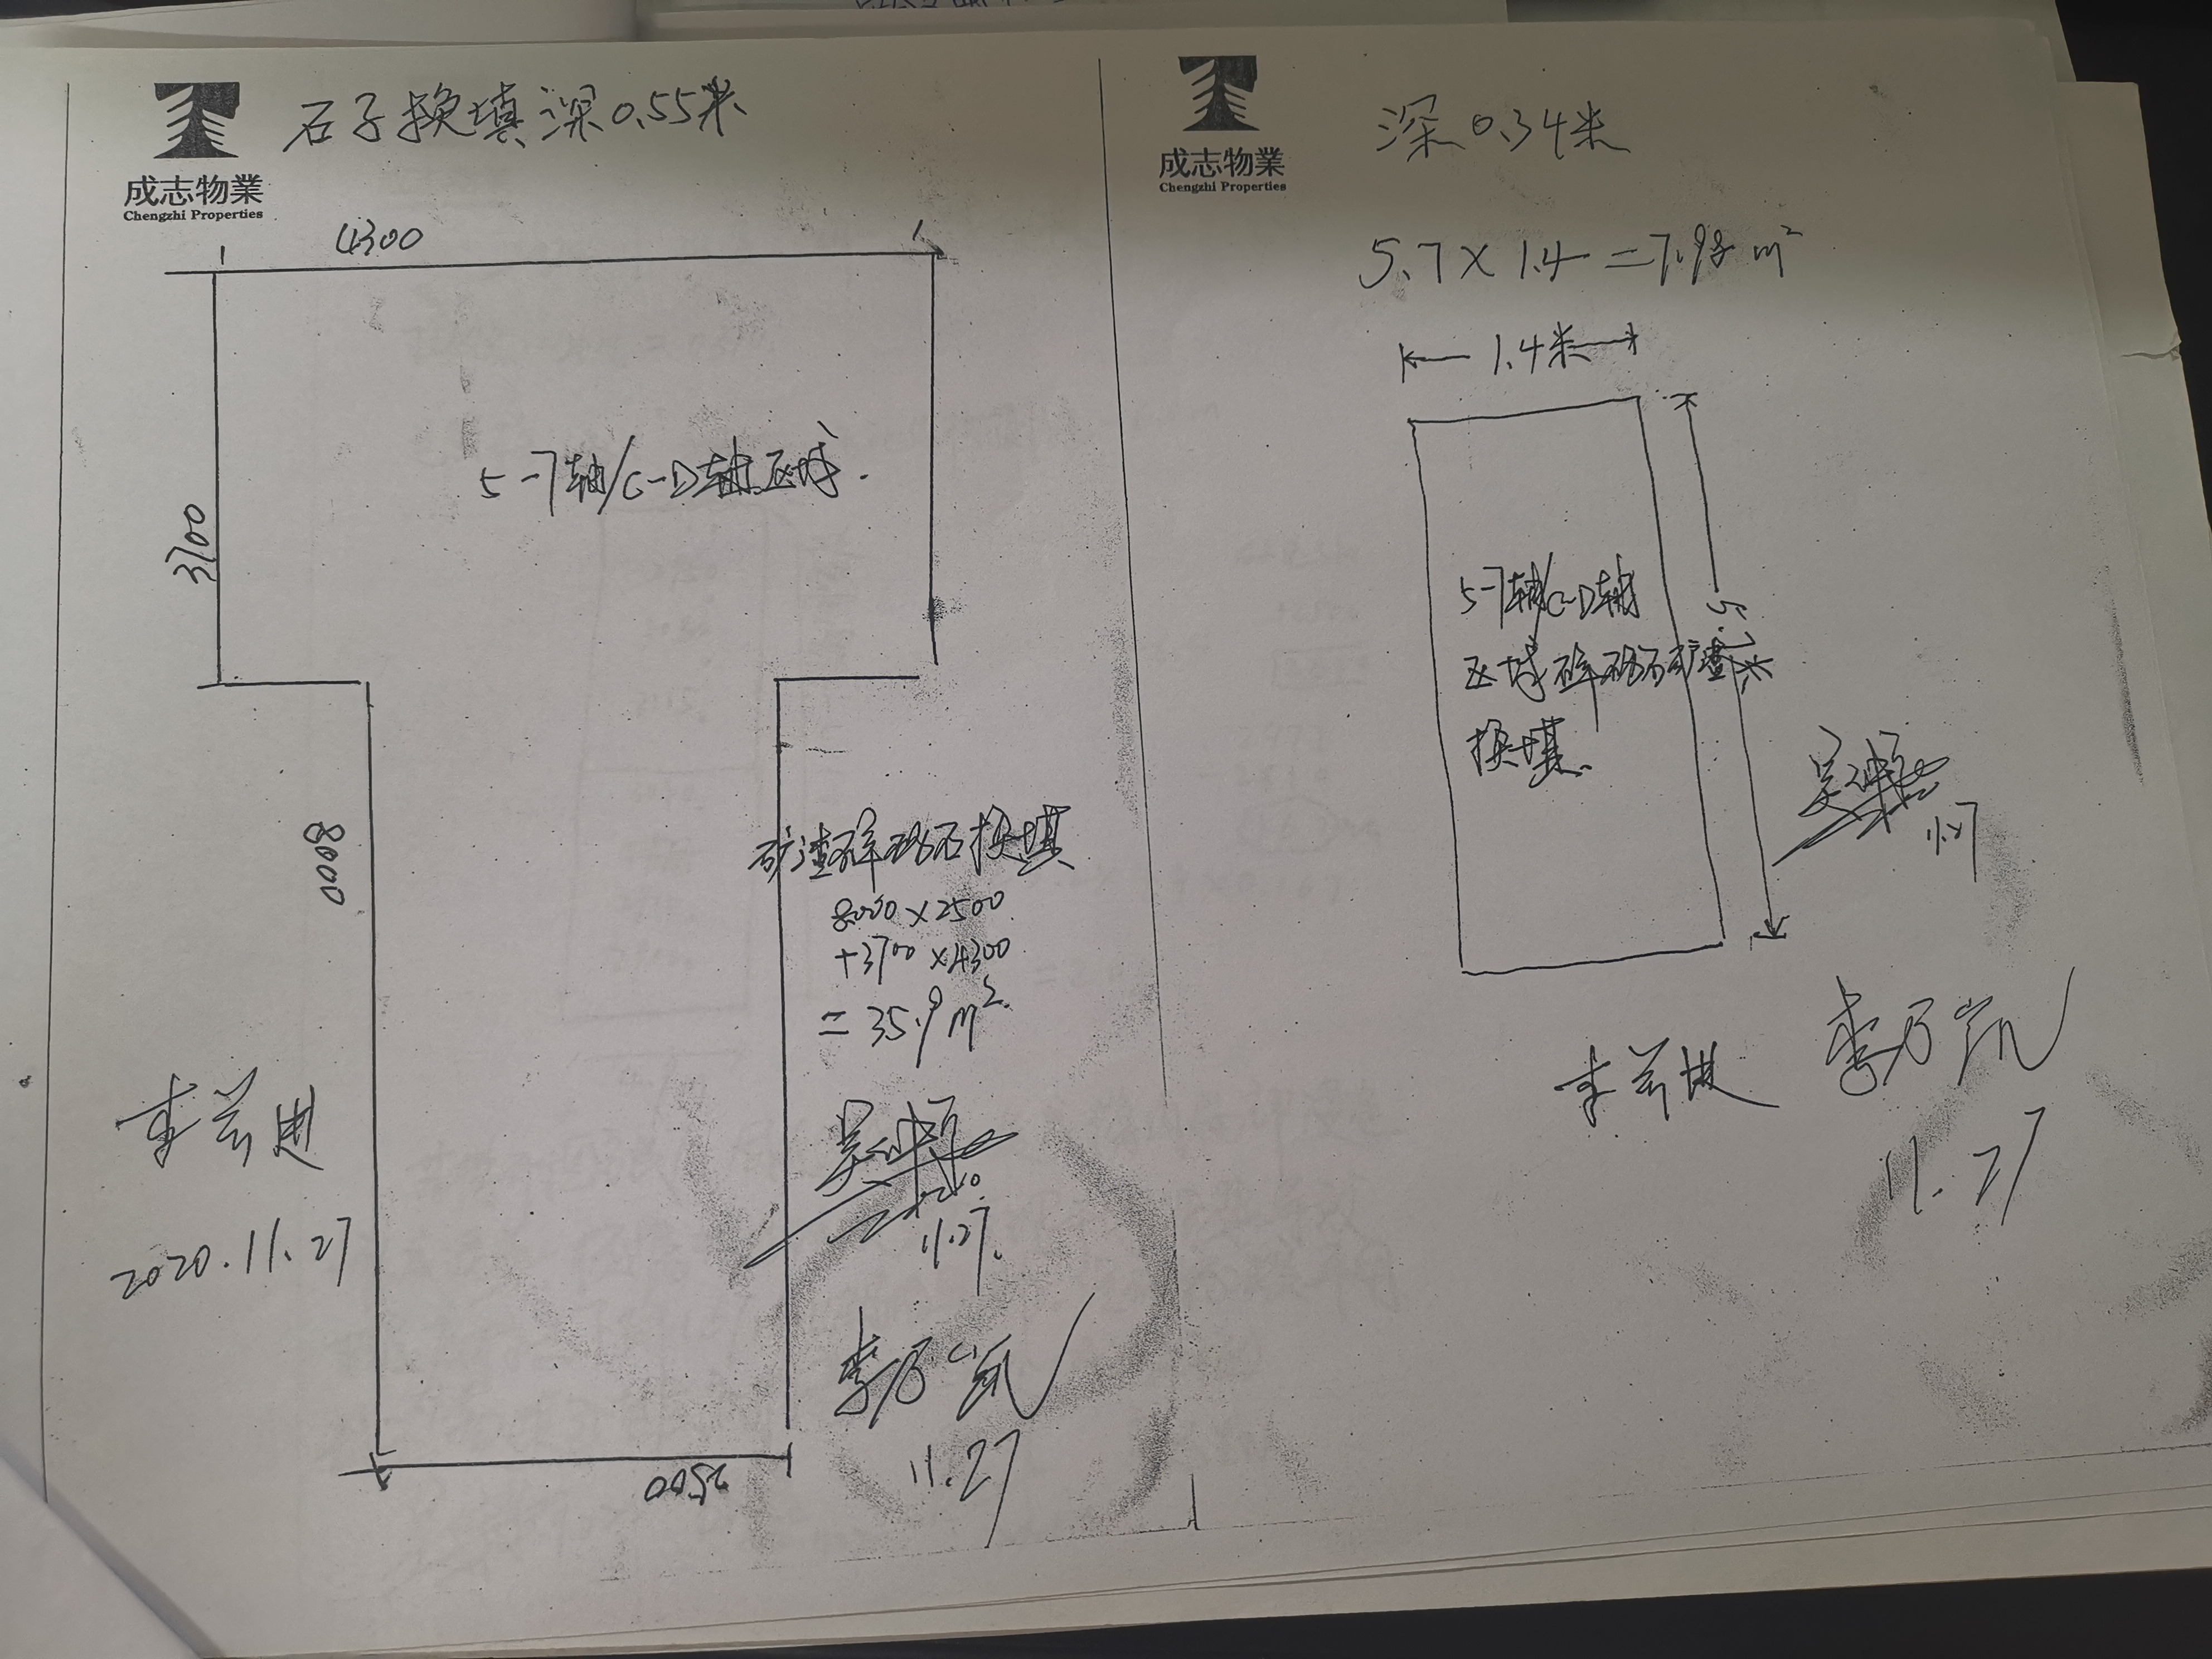 成志物業
Chengzhi Properties
石子换填深0.55米
4300
3700
5-7轴/C-D轴区域.
8000
矿渣碎砾石换填
8000×2500
+3700×4300
=35.9m².
2020.11.27
11.27.
11.27
2500
成志物業
Chengzhi Properties
深0.34米
5.7×1.4=7.98m²
1.4米
5.7米
5-7轴/C-D轴
区域碎砾石矿渣
换填.
11.27
李乃凯
11.27